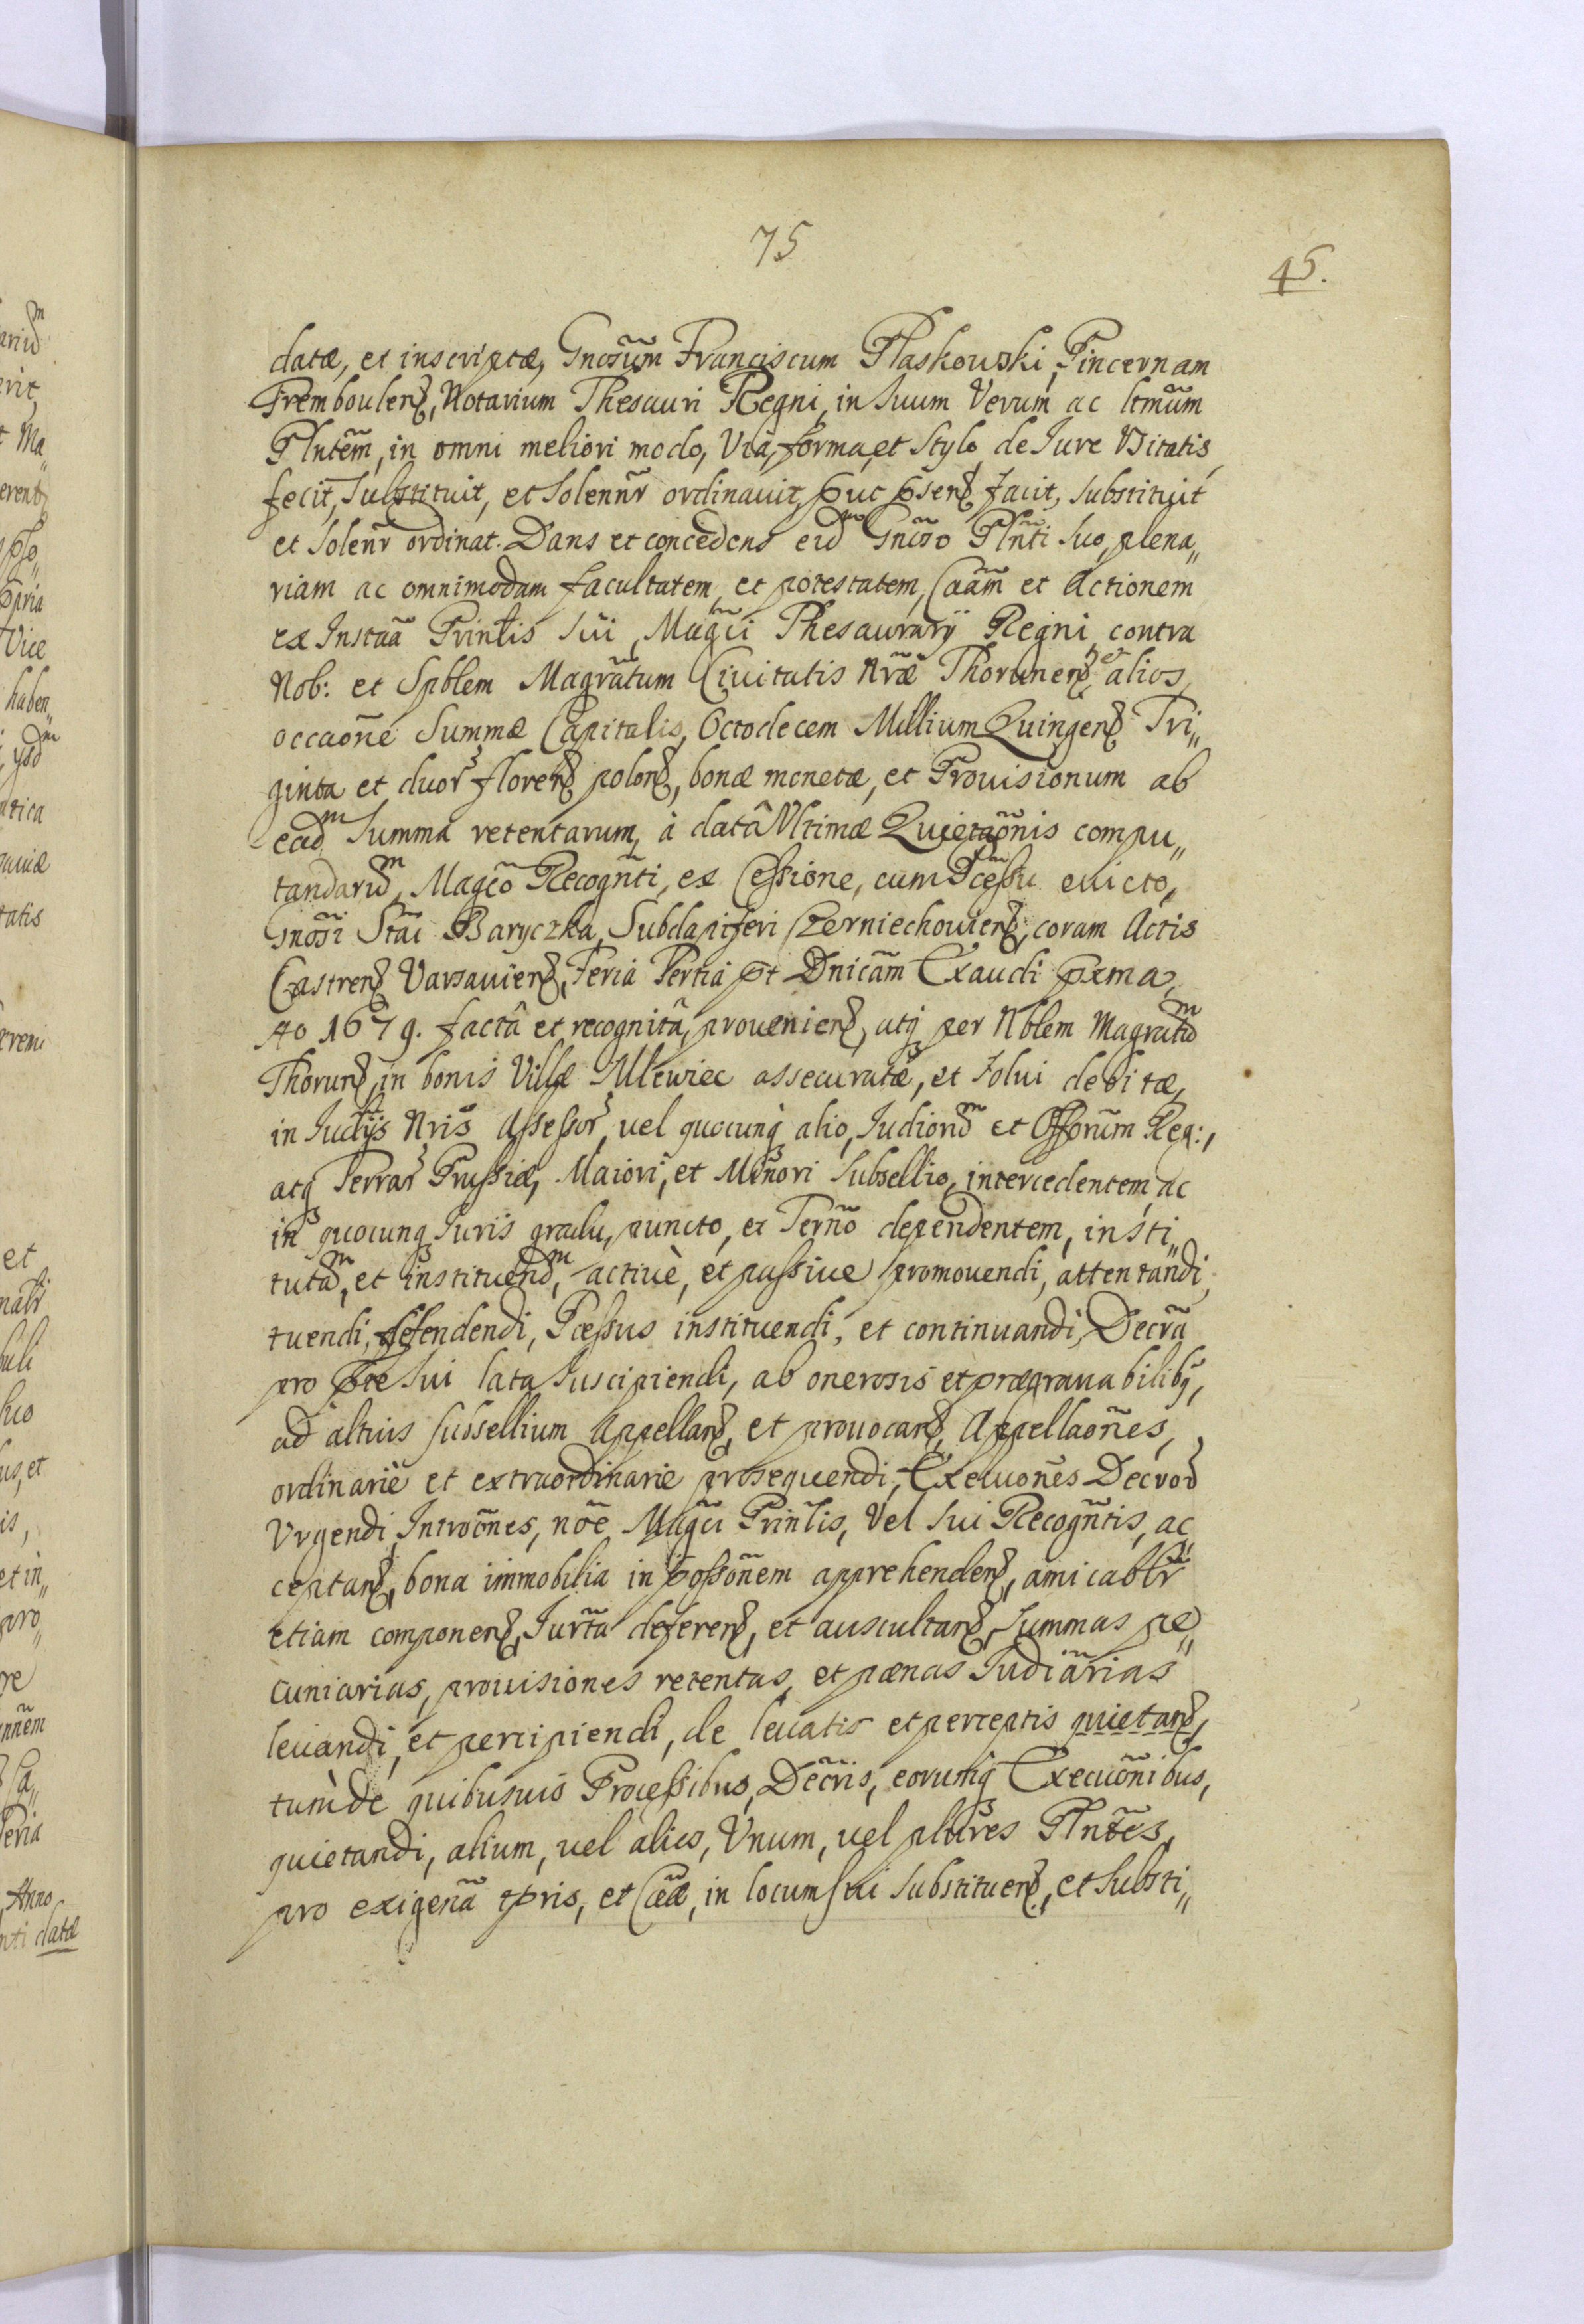 75
45.
datæ, et inscriptæ, Gnosũm Franciscum Płaskowski, Pincernam
Tremboulens, Notarium Thesauri Regni, in suum Verum ac ltmũm
Plntẽm, in omni meliori modo, Viâ, forma, et stylo de Iure Vsitatis,
fecit, Substituit, et Solennr̃ ordinauit, put psens facit, substituit
et solenr̃ ordinat. Dans et concedens eidm Gnõso Plñti suo, plena„
riam ac omnimodam facultatem, et potestatem, Caãm et Actionem
ex Instaã Prinlis sũi, Mãgci Thesaurarij Regni contra
Nob: et Spblem Magrãtum Ciuitatis Nrãe Thorunens et alios,
occaoñe Summæ Capitalis, Octodecem Millium Quingens Tri„
ginta et duor florens polons, bonæ monetæ, et Prouisionum ab
eadm Summa retentarum, à datâ Vltimæ Quietaõnis compu„
tandarum, Magcõ Recogñti, ex Cessione, cum Pcessu euicto,
Gnõsi Stãi Baryczka, Subdapiferi Czerniechouiens, coram Actis
Castrens Varsauiens, Feria Tertia pt Dnicãm Exaudi pxma,
Ao 1679. factâ et recognitâ, proueniens, atq per Nblem Magratum
Thoruns, in bonis Villæ Mlewiec assecuratæ, et solui debitæ,
in Judijs Nris Assessor, vel quocunq alio, Iudiorum et Offorũm Reg:,
atq Terrar Prussiæ, Maiori, et Minori Subsellio, intercedentem, ac
in quocunq Iuris gradu, puncto, et Terñõ dependentem, insti„
tutam, et instituendm, actiuè, et passiue promouendi, attentandi,
tuendi, defendendi, Pcessus instituendi, et continuandi, Decrã
pro pte sui lata suscipiendi, ab onerosis et prægrauabilibq,
ad altius subsellium Appellans, et prouocans, Appellaoñes,
ordinariè et extraordinarie prosequendi, Execuoñes Decror
Vrgendi, Introõnes, nõe Mãgci Prinlis, Vel sui Recogñtis, ac„
ceptans, bona immobilia in possoñem apprehendens, amicablr̃
etiam componens, Iurta deferens, et auscultans, Summas pe„
cuniarias, prouisiones retentas, et pænas Iudiãrias
leuandi, et percipiendi, de leuatis et perceptis quietans,
tum de quibusuis Processibus, Decris, eorumq Execuõnibus,
quietandi, alium, vel alios, Vnum, vel plures Plñtes,
pro exigeñã tpris, et Cãæ, in locum sui Substituens, et Substi„